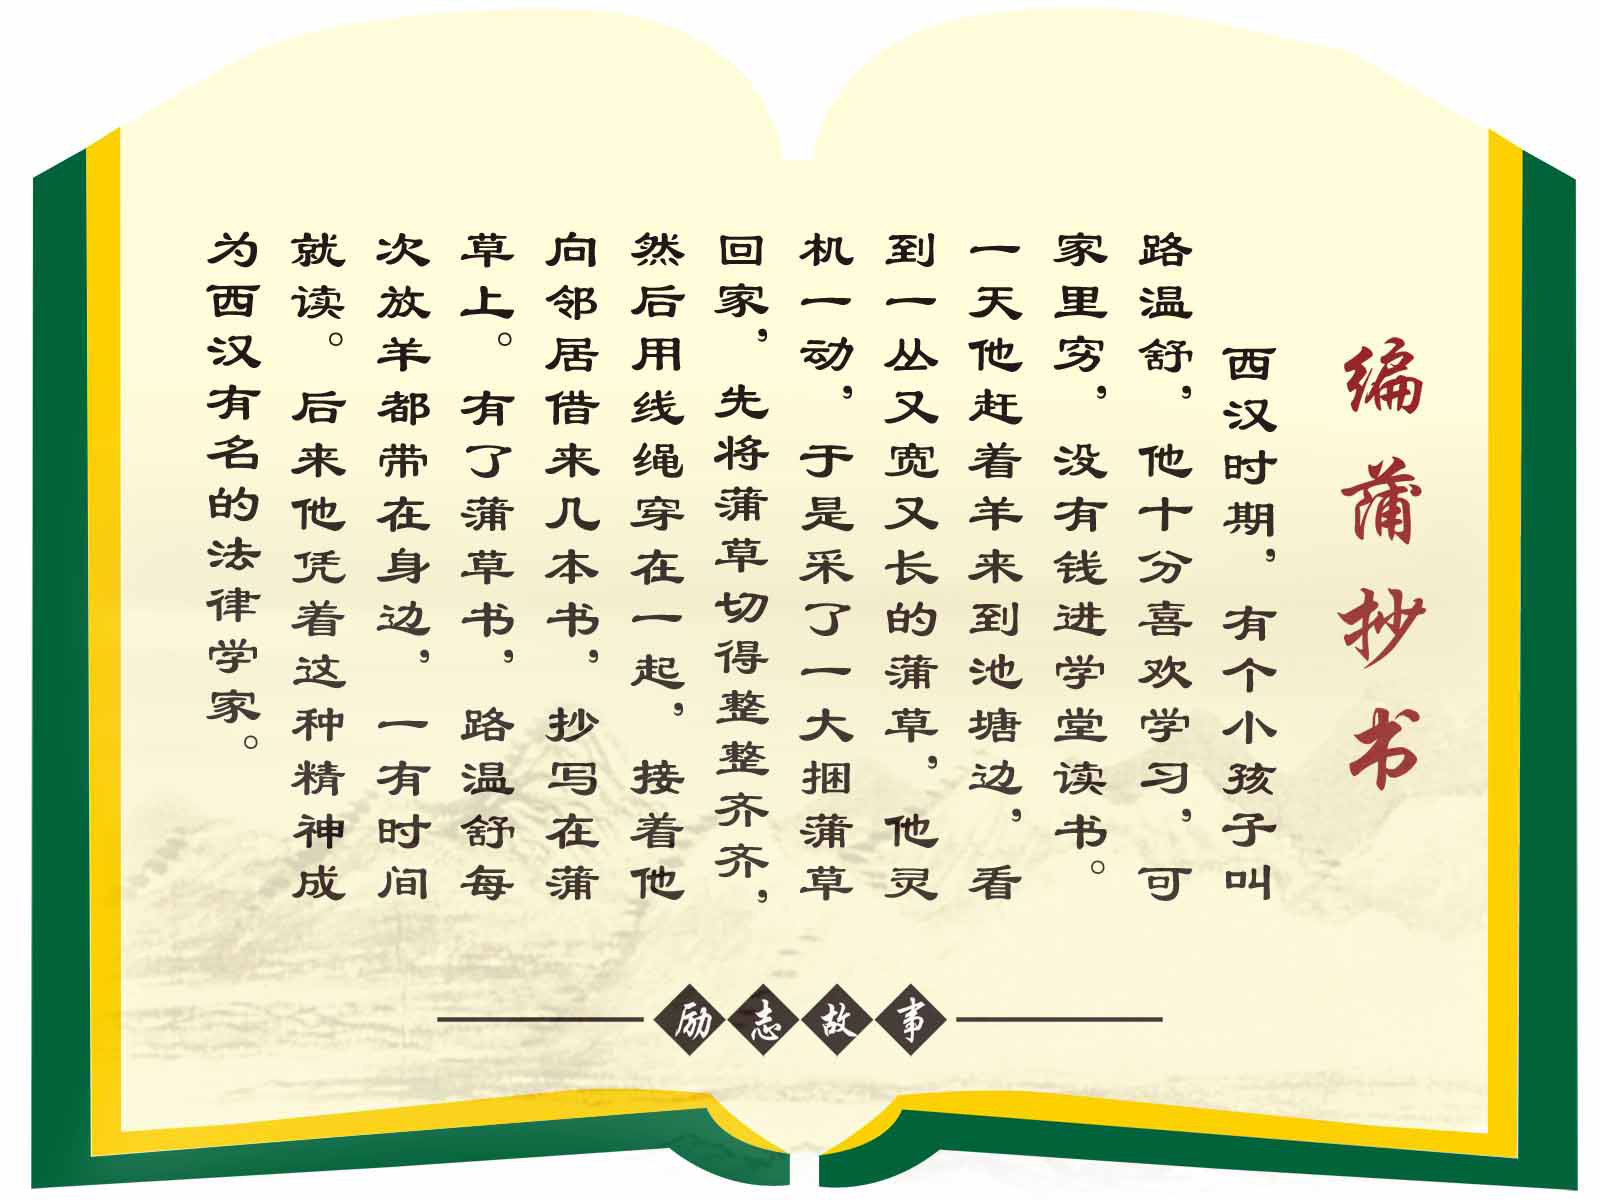 编蒲抄书
西汉时期，有个小孩子叫
路温舒，他十分喜欢学习，可
家里穷，没有钱进学堂读书。
一天他赶着羊来到池塘边，看
到一丛又宽又长的蒲草，他灵
机一动，于是采了一大捆蒲草
回家，先将蒲草切得整整齐齐，
然后用线绳穿在一起，接着他
向邻居借来几本书，抄写在蒲
草上。有了蒲草书，路温舒每
次放羊都带在身边，一有时间
就读。后来他凭着这种精神成
为西汉有名的法律学家。
励志故事